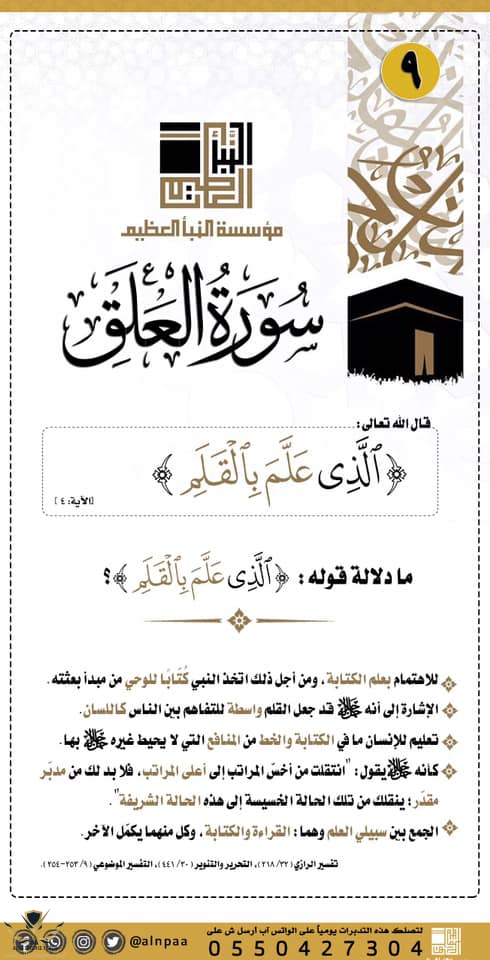 ٩
النبأ العظيم
مؤسسة النبأ العظيم
سُورَةُ العَلَقِ
قال الله تعالى:
﴿ٱلَّذِى عَلَّمَ بِٱلْقَلَمِ﴾
[الآية: ٤]
ما دلالة قوله : ﴿ٱلَّذِى عَلَّمَ بِٱلْقَلَمِ﴾ ؟
للاهتمام بعلم الكتابة، ومن أجل ذلك اتخذ النبي كُتَابًا للوحي من مبدأ بعثته.
الإشارة إلى أنه ﷻ قد جعل القلم واسطة للتفاهم بين الناس كاللسان.
تعليم للإنسان ما في الكتابة والخط من المنافع التي لا يحيط غيره ﷻ بها.
كأنه ﷻ يقول: "انتقلت من أخسّ المراتب إلى أعلى المراتب، فلا بد لك من مدبّر
مقدّر؛ ينقلك من تلك الحالة الخسيسة إلى هذه الحالة الشريفة".
الجمع بين سبيلي العلم وهما: القراءة والكتابة، وكل منهما يكمّل الآخر.
تفسير الرازي (٢١٨/٣٢)، التحرير والتنوير (٤٤١/٣٠)، التفسير الموضوعي (٢٥٣/٩-٢٥٤).
لتصلك هذه التدبرات يومياً على الواتس آب أرسل ش على
0550427304
@alnpaa